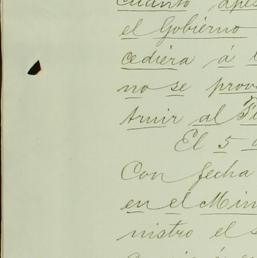 cuanto
el Gobierno
cediera á
no se prov
truir al
El 5
Con fecha
en el Min
nistro el s